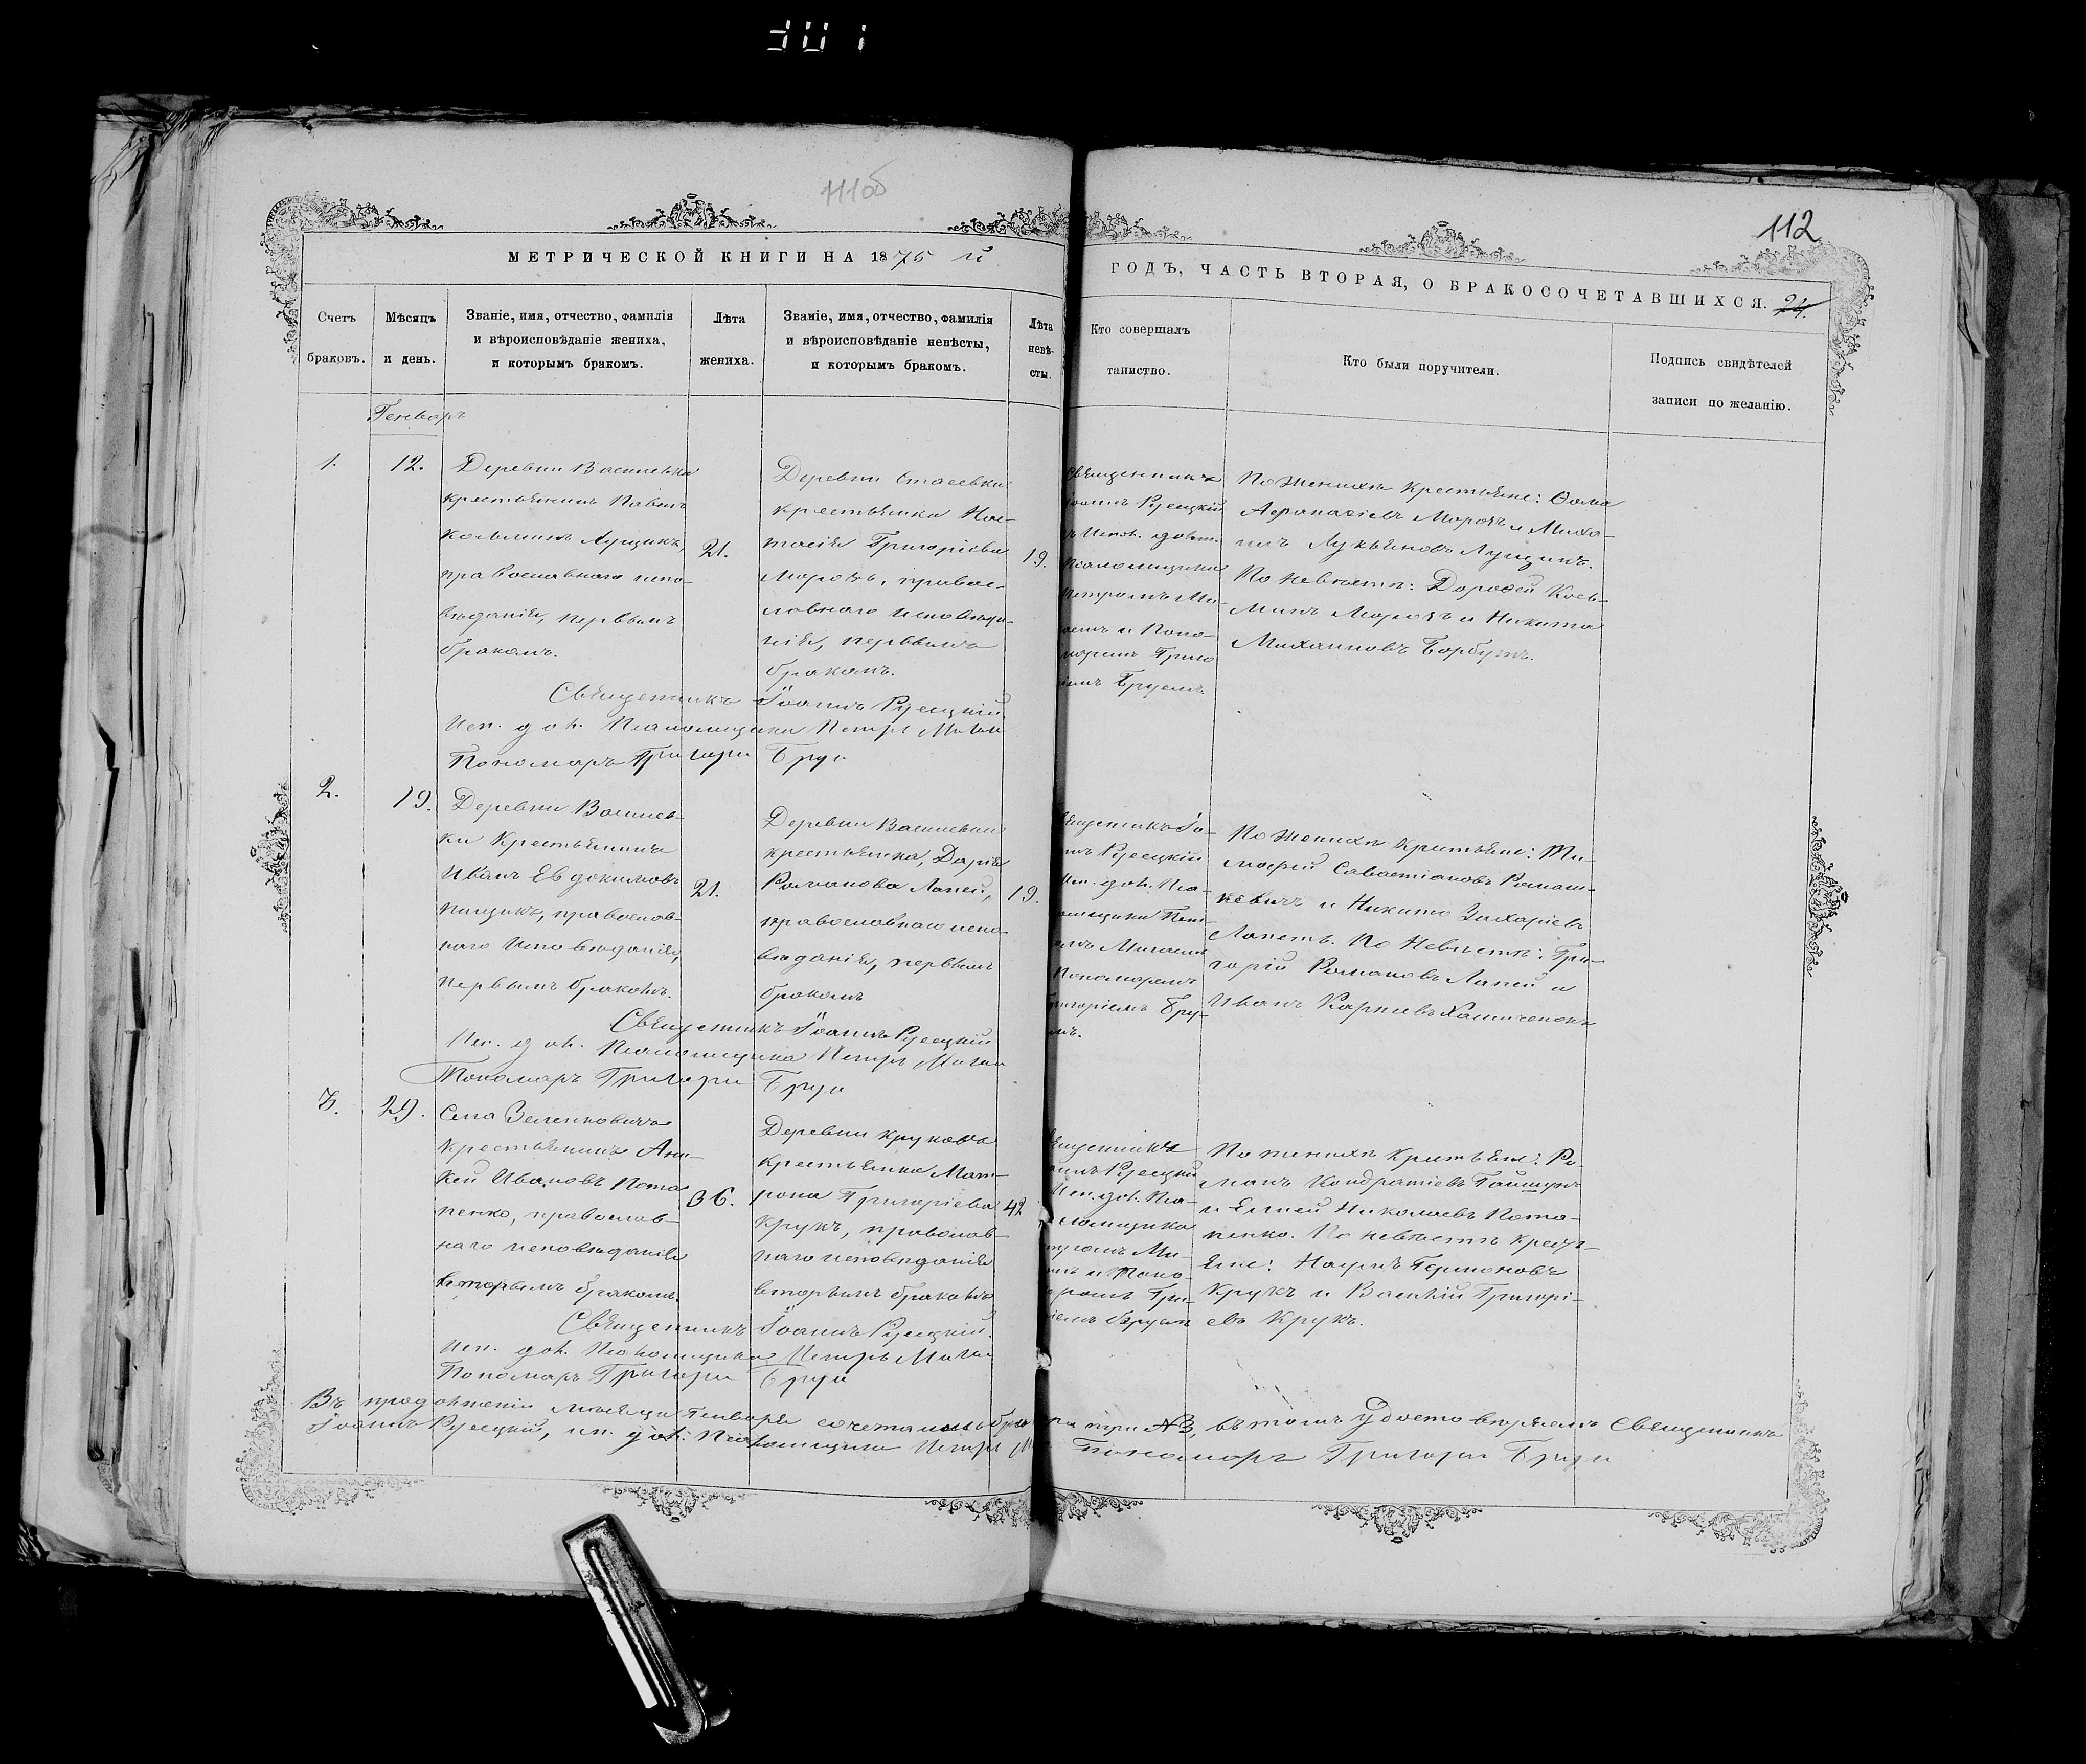 111об
112
МЕТРИЧЕСКОЙ КНИГИ НА 1875 й
ГОДЪ, ЧАСТЬ ВТОРАЯ, О БРАКОСОЧЕТАВШИХСЯ.
24.
Счетъ
браковъ.
Мѣсяцъ
и день.
Званіе, имя, отчество, фамилія
и вѣроисповѣданіе жениха,
и которымъ бракомъ.
Лѣта
жениха.
Званіе, имя, отчество, фамилія
и вѣроисповѣданіе невѣсты,
и которымъ бракомъ.
Лѣта
невѣ-
сты.
Кто совершалъ
таинство.
Кто были поручители.
Подпись свидѣтелей
записи по желанію.
Генварь
1.
12.
Деревни Василевки
крестьянинъ Павелъ
Козьминъ Лущикъ,
православнаго испо-
вѣданія, первымъ
бракомъ.
21.
Деревни Стасевки
крестьянка Нас-
тасія Григоріева
Морозъ, правос-
лавнаго исповѣда-
нія, первымъ
бракомъ.
19.
Священникъ
Іоаннъ Русецкій
Исп. долж.
Псаломщика
Петромъ Ми-
и Поно-
маремъ Григо
Бруемъ.
По женихѣ крестьяне: Ѳома
Аѳанасіевъ Морозъ и Миха-
илъ Лукьяновъ Лущикъ.
По невѣстѣ: Дороѳей Кось-
минъ Морозъ и Никита
Михаиловъ Борбутъ.
Священникъ Іоаннъ Русецкій
Исп. дол. Псаломщика Петръ
Пономарь Григорій Бруй
2.
19.
Деревни Василев-
ки Крестьянинъ
Иванъ Евдокимовъ
православ-
наго исповѣданія,
первымъ бракомъ.
21.
Деревни Василевки
крестьянка, Дарія
Романова Лапей,
православнаго испо-
вѣданія, первымъ
бракомъ
19.
Русецкій
Исп. дол. Пса-
ломщика Пет-
Пономаремъ
Григоріемъ Бру-
емъ.
По женихѣ крестьяне: Ти-
моѳей Савостіановъ Ромаш-
кевичъ и Никита Захаріевъ
Лапеть. По Невѣстѣ: Гри-
горій Романовъ Лапей и
Иванъ Карпіевъ
Священникъ Іоаннъ Русецкій
Исп. дол. Псаломщика Петръ
Пономарь Григорій Бруй
3.
29.
Села Зеленковичъ
Крестьянинъ Ани-
кей Ивановъ Пота
пенко, православ-
наго исповѣданія
вторымъ бракомъ.
36.
Деревни Круковъ
крестьянка Мат-
рона Григоріева
Крукъ, православ-
наго исповѣданія
вторымъ бракомъ
42
Русецкій
Исп. дол. Пса-
ломщика
Петромъ Ми-
и Поно-
маремъ Гри-
горіемъ Бруемъ
По женихѣ крестьяне: Ро-
манъ Кондратіевъ
и Николаевъ Пота-
пенко. По невѣстѣ крест-
яне: Наумъ
Крукъ и Василій Григорі-
евъ Крукъ.
Священникъ Іоаннъ Русецкій.
Исп. дол. Псаломщика Петръ
Пономарь Григорій Бруй
Въ продолженіи мѣсяца Генваря сочеталось бра три №3, въ томъ удостовѣряемъ Священникъ
Іоаннъ Русецкій, исп. дол. Псаломщика Петръ Пономарь Григорій Бруй